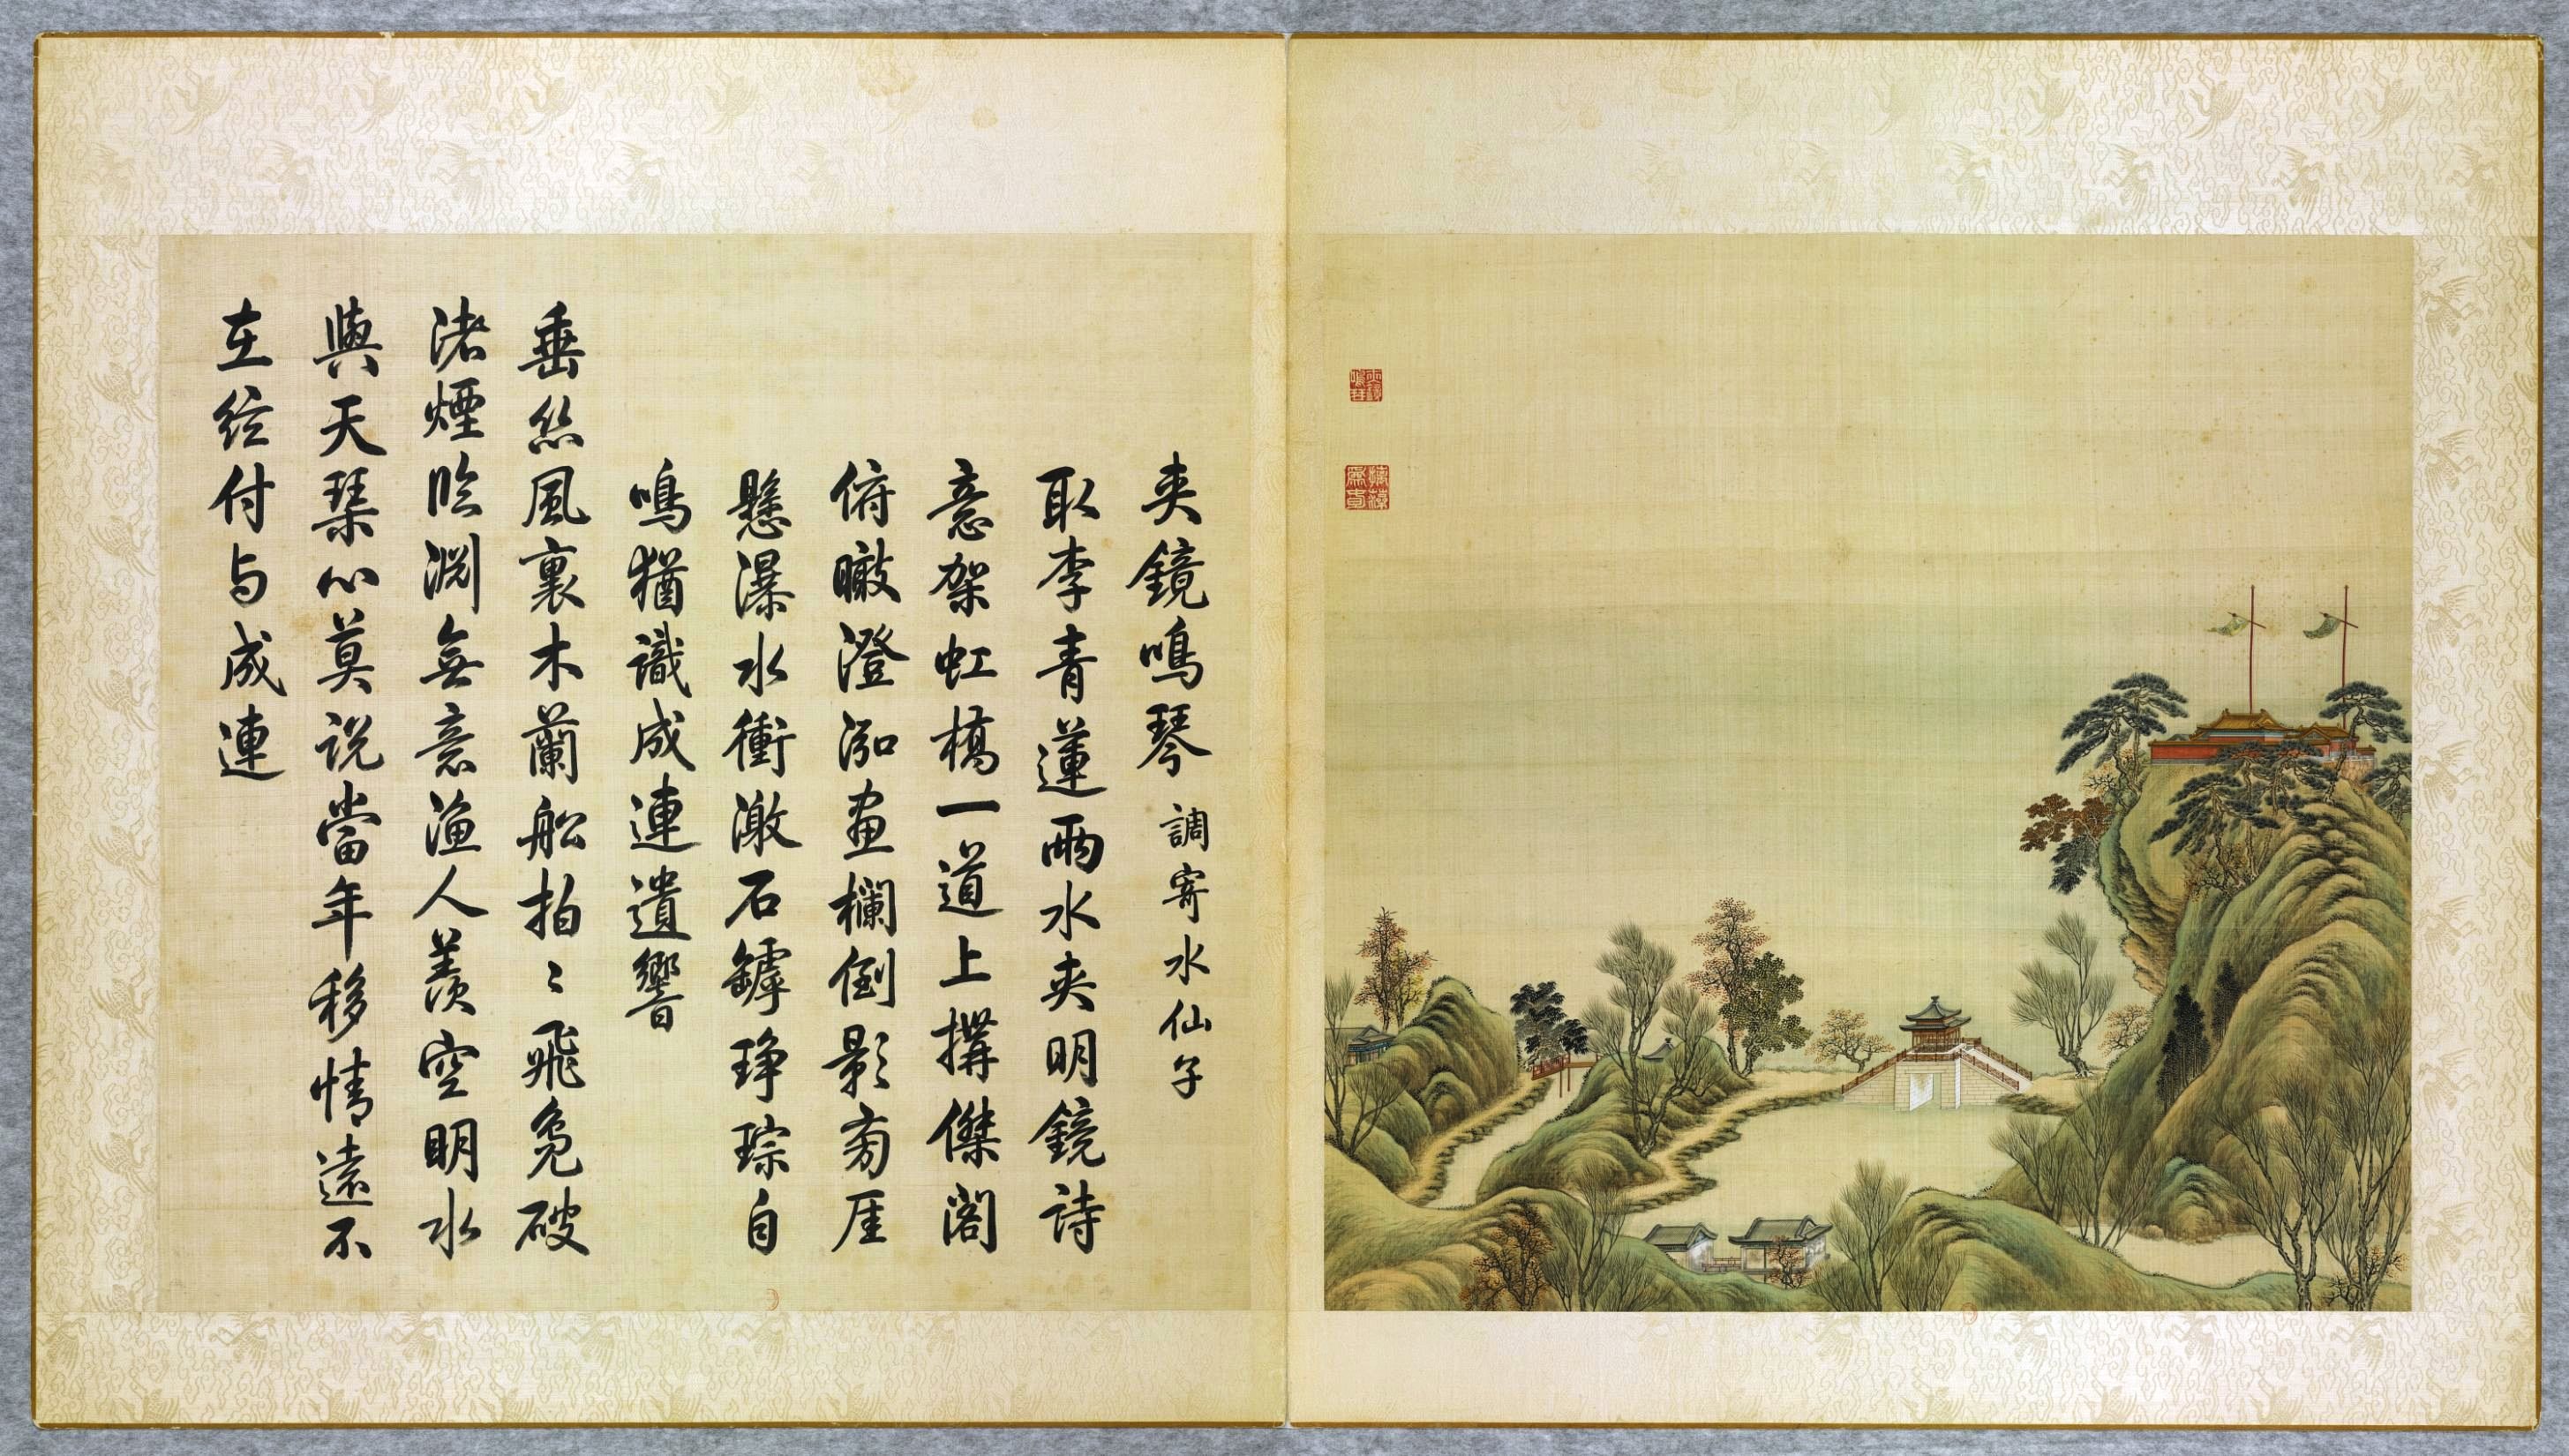 夾鏡鳴琴 調寄水仙子
取李青蓮兩水夾明鏡詩
意架虹橋一道上搆傑閣
俯瞰澄泓畫欄倒影旁厓
懸瀑水衝激石罅琤琮自
鳴猶識成連遺響
垂絲風裏木蘭船拍〻飛鳧破
渚煙臨淵無意漁人羨空明水
與天琴心莫説當年移情遠不
在絃付与成連